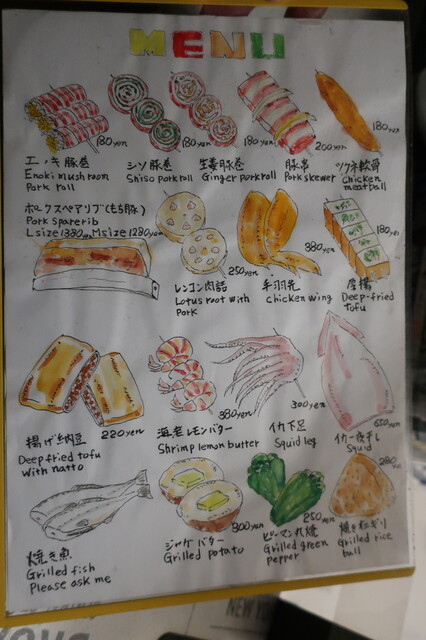 MENU
180yen
エノキ豚巻
Enoki mushroom
Pork roll
180yen
シソ豚巻
Shiso pork roll
180yen
生姜豚巻
Ginger pork roll
200yen
豚串
Pork skewer
180yen
ツクネ軟骨
chicken
meatball
ポークスペアリブ(もち豚)
Pork sparerib
L size 1380yen M size 1280yen
250yen
レンコン肉詰
Lotus root with
Pork
380yen
手羽先
chicken wing
180yen
厚揚
Deep-fried
tofu
220yen
揚げ納豆
Deep fried tofu
with natto
380yen
海老レモンバター
Shrimp lemon butter
300yen
イカ下足
Squid leg
650yen
イカ一夜干し
Squid
焼き魚
Grilled fish
Please ask me
300yen
ジャケバター
Grilled potato
250yen
ピーマン丸焼
Grilled green
pepper
280yen
焼きおにぎり
Grilled rice
ball
NEW